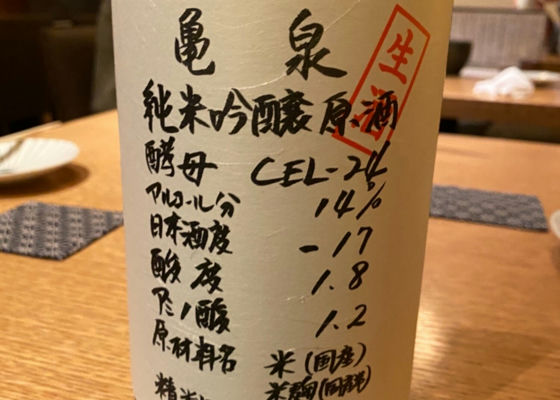 亀泉
生酒
純米吟醸原酒
酵母 CEL-24
アルコール分 14%
日本酒度 -17
酸度 1.8
アミノ酸 1.2
原材料名 米(国産)
米麹(国産)
精米